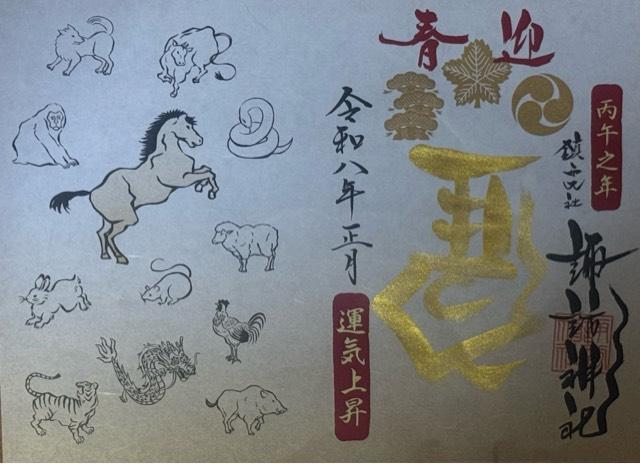 迎春
丙午之年
鎮西大社
諏訪神社
馬
令和八年正月
運気上昇